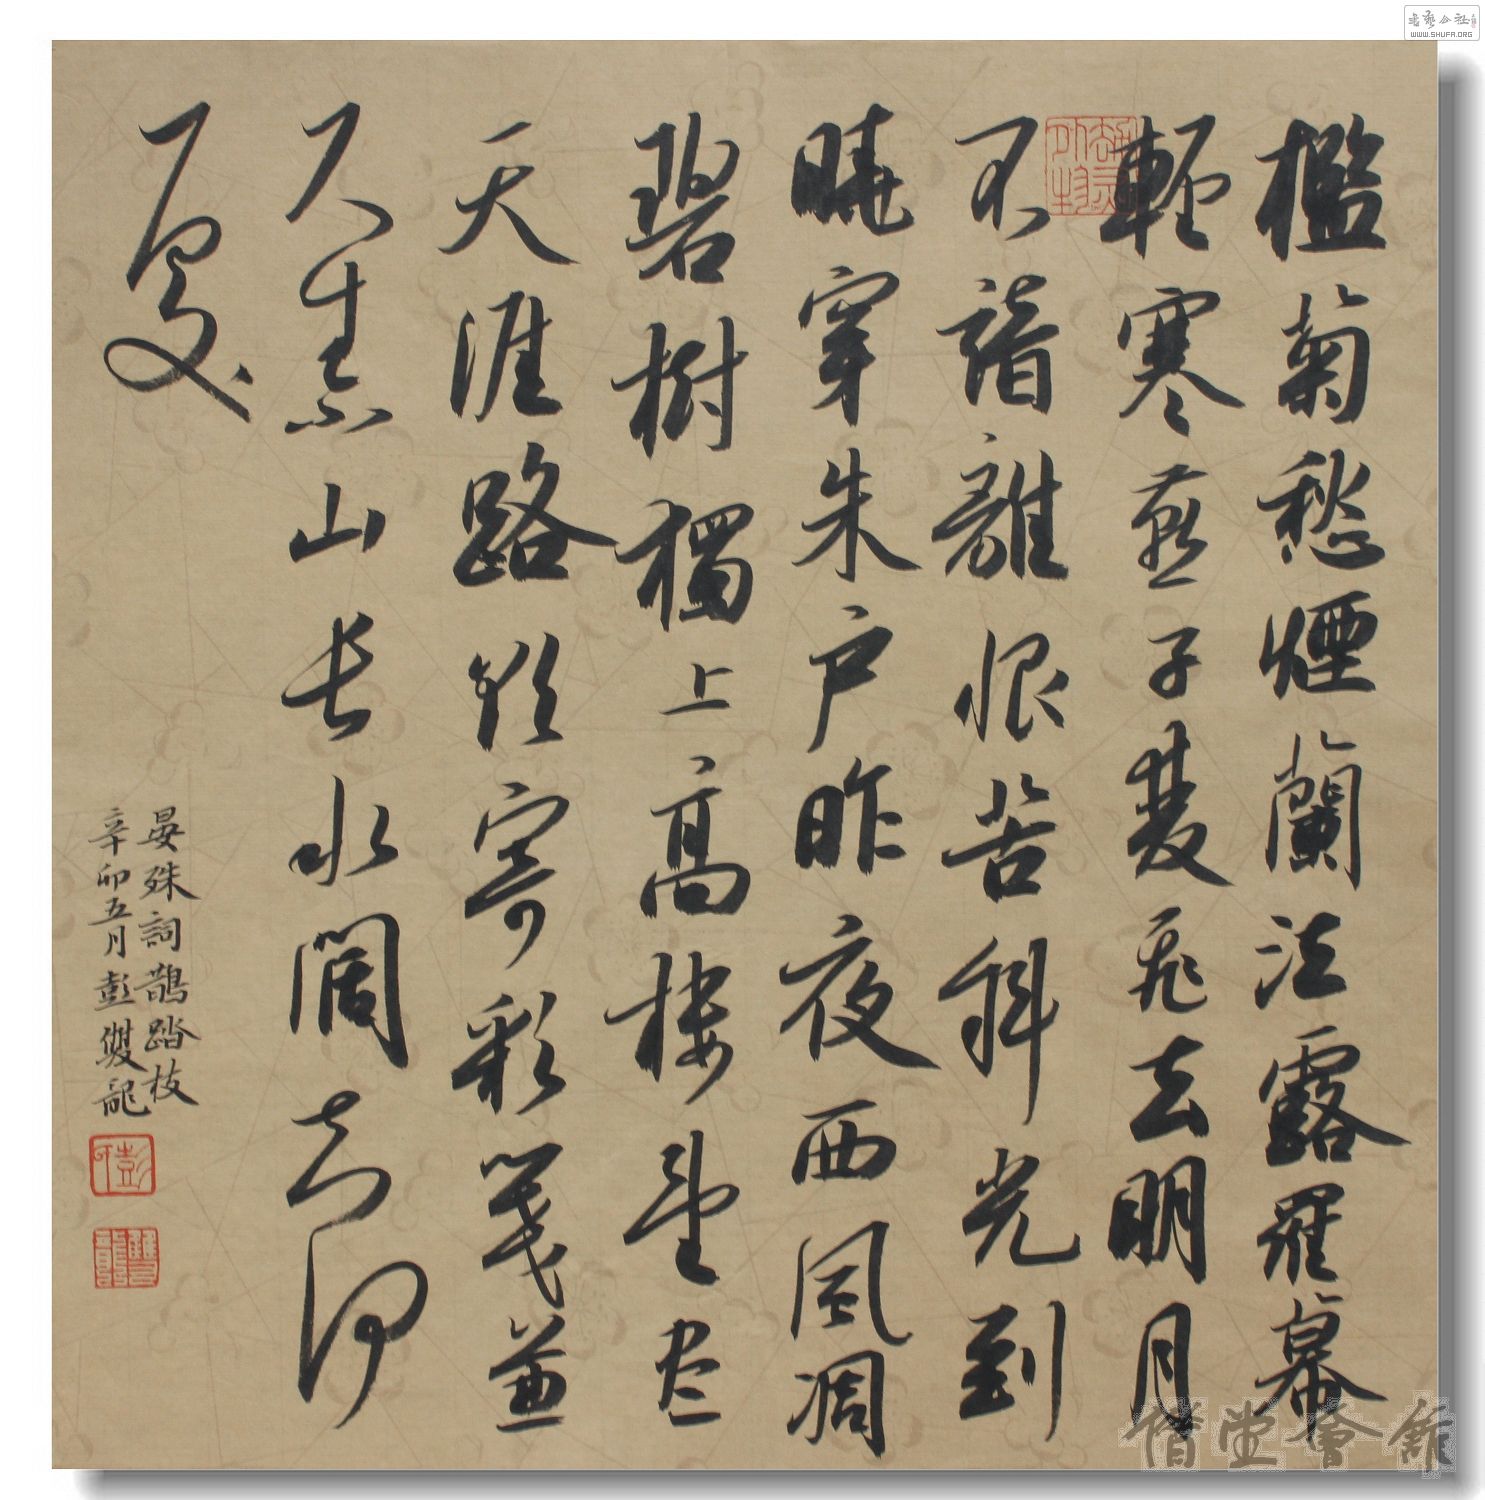 檻菊愁煙蘭泣露羅幕
輕寒燕子雙飛去明月
不諳離恨苦斜光到
曉穿朱户昨夜西風凋
碧樹獨上高樓望尽
天涯路欲寄彩箋兼
尺素山長水闊知何
處
晏殊詞鵲踏枝
辛卯五月彭雙龍
書藝公社
WWW.SHUFA.ORG